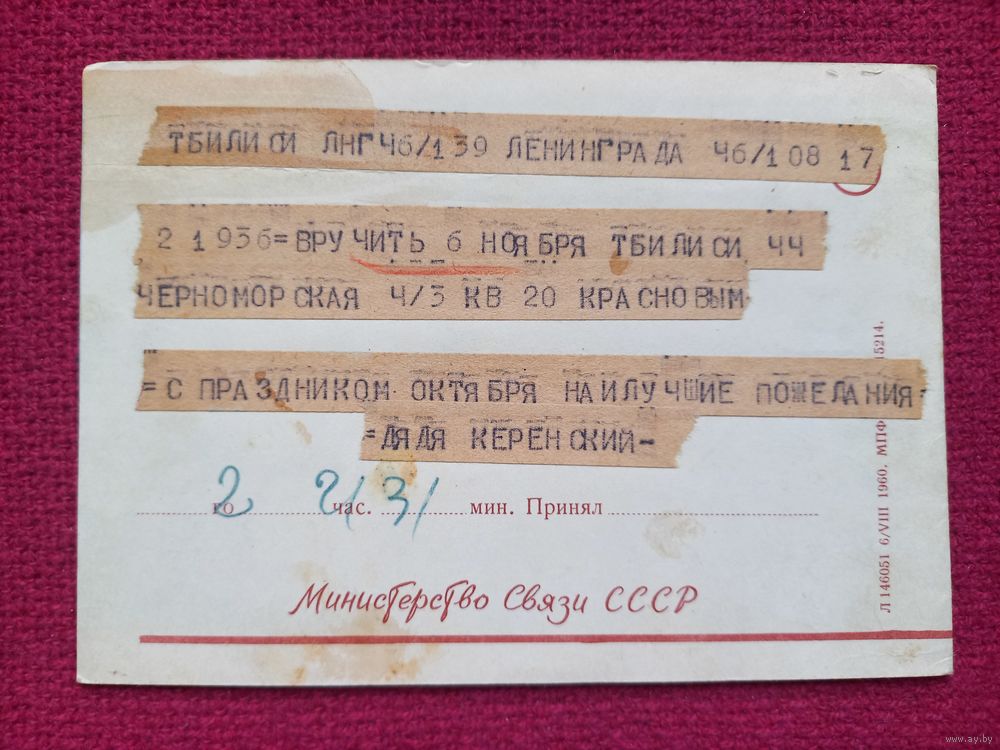 ТБИЛИСИ ЛНГ Ч6/139 ЛЕНИНГРАДА Ч6/1 08 17
2 1936=ВРУЧИТЬ 6 НОЯБРЯ ТБИЛИСИ ЧЧ
ЧЕРНОМОРСКАЯ Ч/3 КВ 20 КРАСНОВЫМ
=С ПРАЗДНИКОМ ОКТЯБРЯ НАИЛУЧШИЕ ПОЖЕЛАНИЯ=
=ДЯДЯ КЕРЕНСКИЙ-
го 2 час. мин. Принял
Министерство Связи СССР
Л 146051 6/VIII 1960. МПФ 5214.
www.ay.by